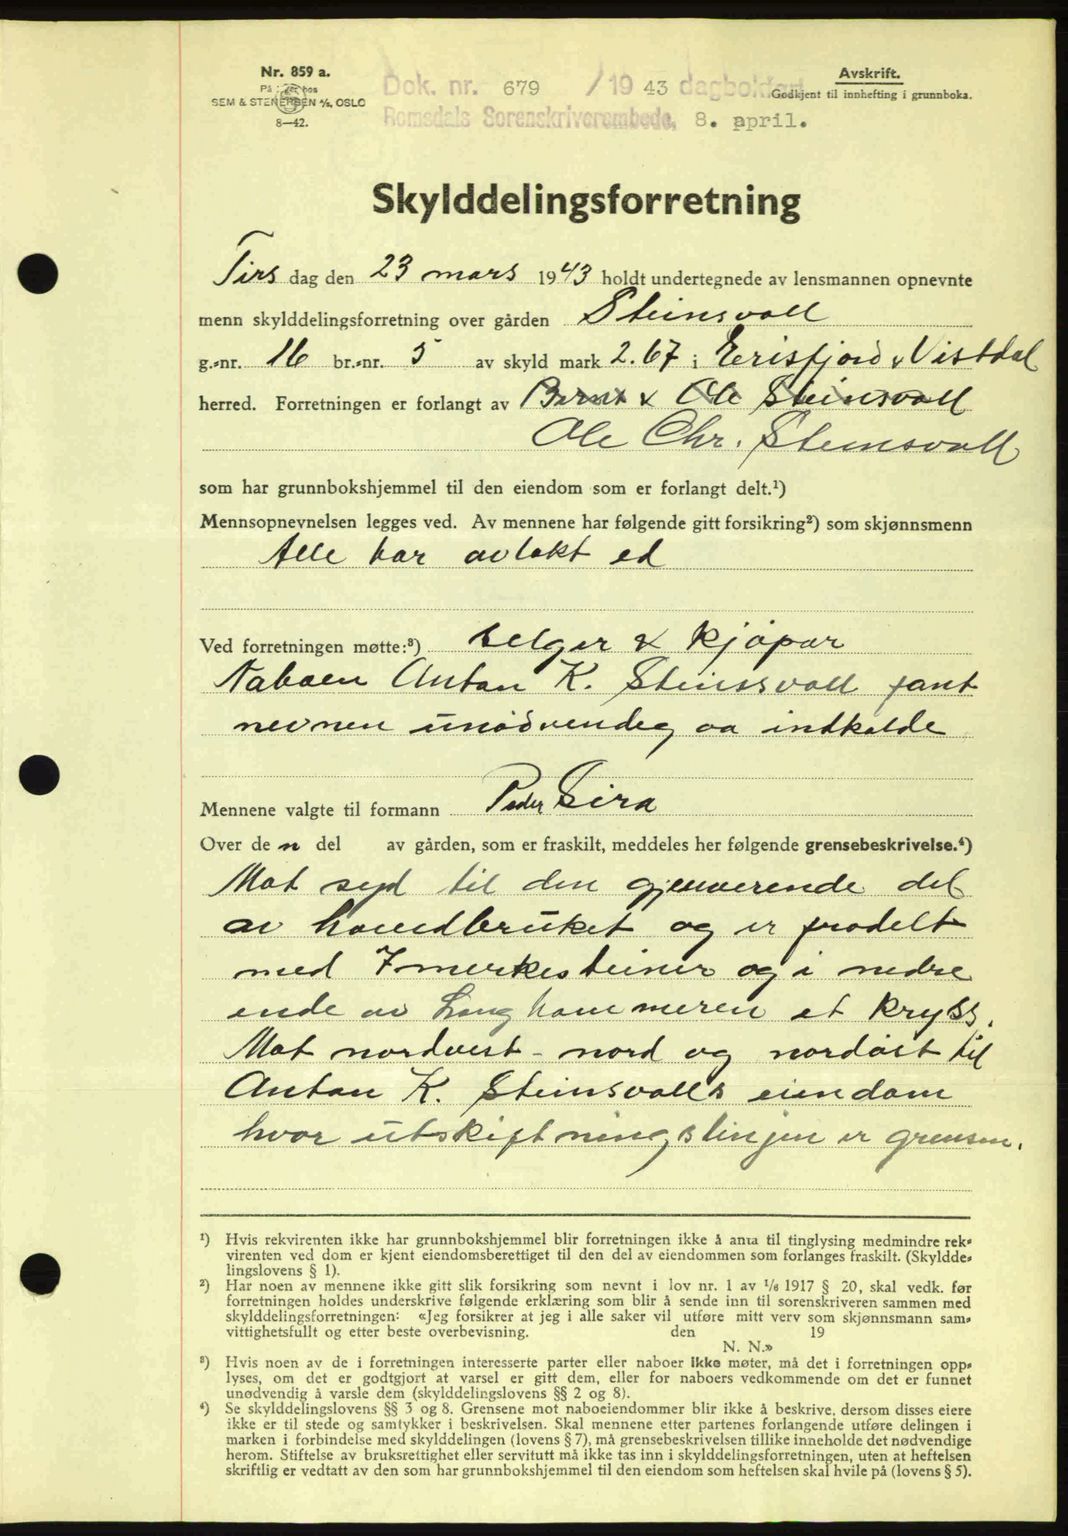 Nr. 859 a.
På lager hos
SEM & STENERSEN A/S, OSLO
8—42.
Dok. nr. 679 /1943 dagbokført
Romsdals Sorenskriverembede, 8. april.
Avskrift.
Godkjent til innhefting i grunnboka.
Skylddelingsforretning
Tirs dag den 23 mars 1943 holdt undertegnede av lensmannen opnevnte
menn skylddelingsforretning over gården Steinsvoll
g.-nr. 16 br.-nr. 5 av skyld mark 2.67 i Erisfjord & Vistdal
herred. Forretningen er forlangt av Bernt & Ole Steinsvoll
Ole Chr. Steinsvoll
som har grunnbokshjemmel til den eiendom som er forlangt delt.¹)
Mennsopnevnelsen legges ved. Av mennene har følgende gitt forsikring²) som skjønnsmenn
Alle har avlakt ed
Ved forretningen møtte:³) Selger & kjøpar
Naboen Anton K. Steinssvoll fant
nevnen unødvendeg aa indkalde
Mennene valgte til formann Peder Sira
Over den del av gården, som er fraskilt, meddeles her følgende grensebeskrivelse.⁴)
Mot syd til den gjenverende del
av hovedbruket og er fradelt
med 7 merkesteiner og i nedre
ende av Langhammeren et kryss.
Mot nordvest - nord og nordøst til
Anton K. Steinsvolls eiendom
hvor utskiftningslinjen er grensen.
¹) Hvis rekvirenten ikke har grunnbokshjemmel blir forretningen ikke å anta til tinglysing medmindre rek-
virenten ved dom er kjent eiendomsberettiget til den del av eiendommen som forlanges fraskilt. (Skyldde-
lingslovens § 1).
²) Har noen av mennene ikke gitt slik forsikring som nevnt i lov nr. 1 av 1/6 1917 § 20, skal vedk. før
forretningen holdes underskrive følgende erklæring som blir å sende inn til sorenskriveren sammen med
skylddelingsforretningen: «Jeg forsikrer at jeg i alle saker vil utføre mitt verv som skjønnsmann sam-
vittighetsfullt og etter beste overbevisning. den 19
N. N.»
³) Hvis noen av de i forretningen interesserte parter eller naboer ikke møter, må det i forretningen opp-
lyses, om det er godtgjort at varsel er gitt dem, eller for naboers vedkommende om det er funnet
unødvendig å varsle dem (skylddelingslovens §§ 2 og 8).
⁴) Se skylddelingslovens §§ 3 og 8. Grensene mot naboeiendommer blir ikke å beskrive, dersom disses eiere
ikke er til stede og samtykker i beskrivelsen. Skal mennene etter partenes forlangende utføre delingen i
marken i forbindelse med skylddelingen (lovens § 7), må grensebeskrivelsen tillike inneholde det nødvendige
herom. Stiftelse av bruksrettighet eller servitutt må ikke tas inn i skylddelingsforretningen, uten at heftelsen
skriftlig er vedtatt av den som har grunnbokshjemmel til den eiendom som heftelsen skal hvile på (lovens § 5).